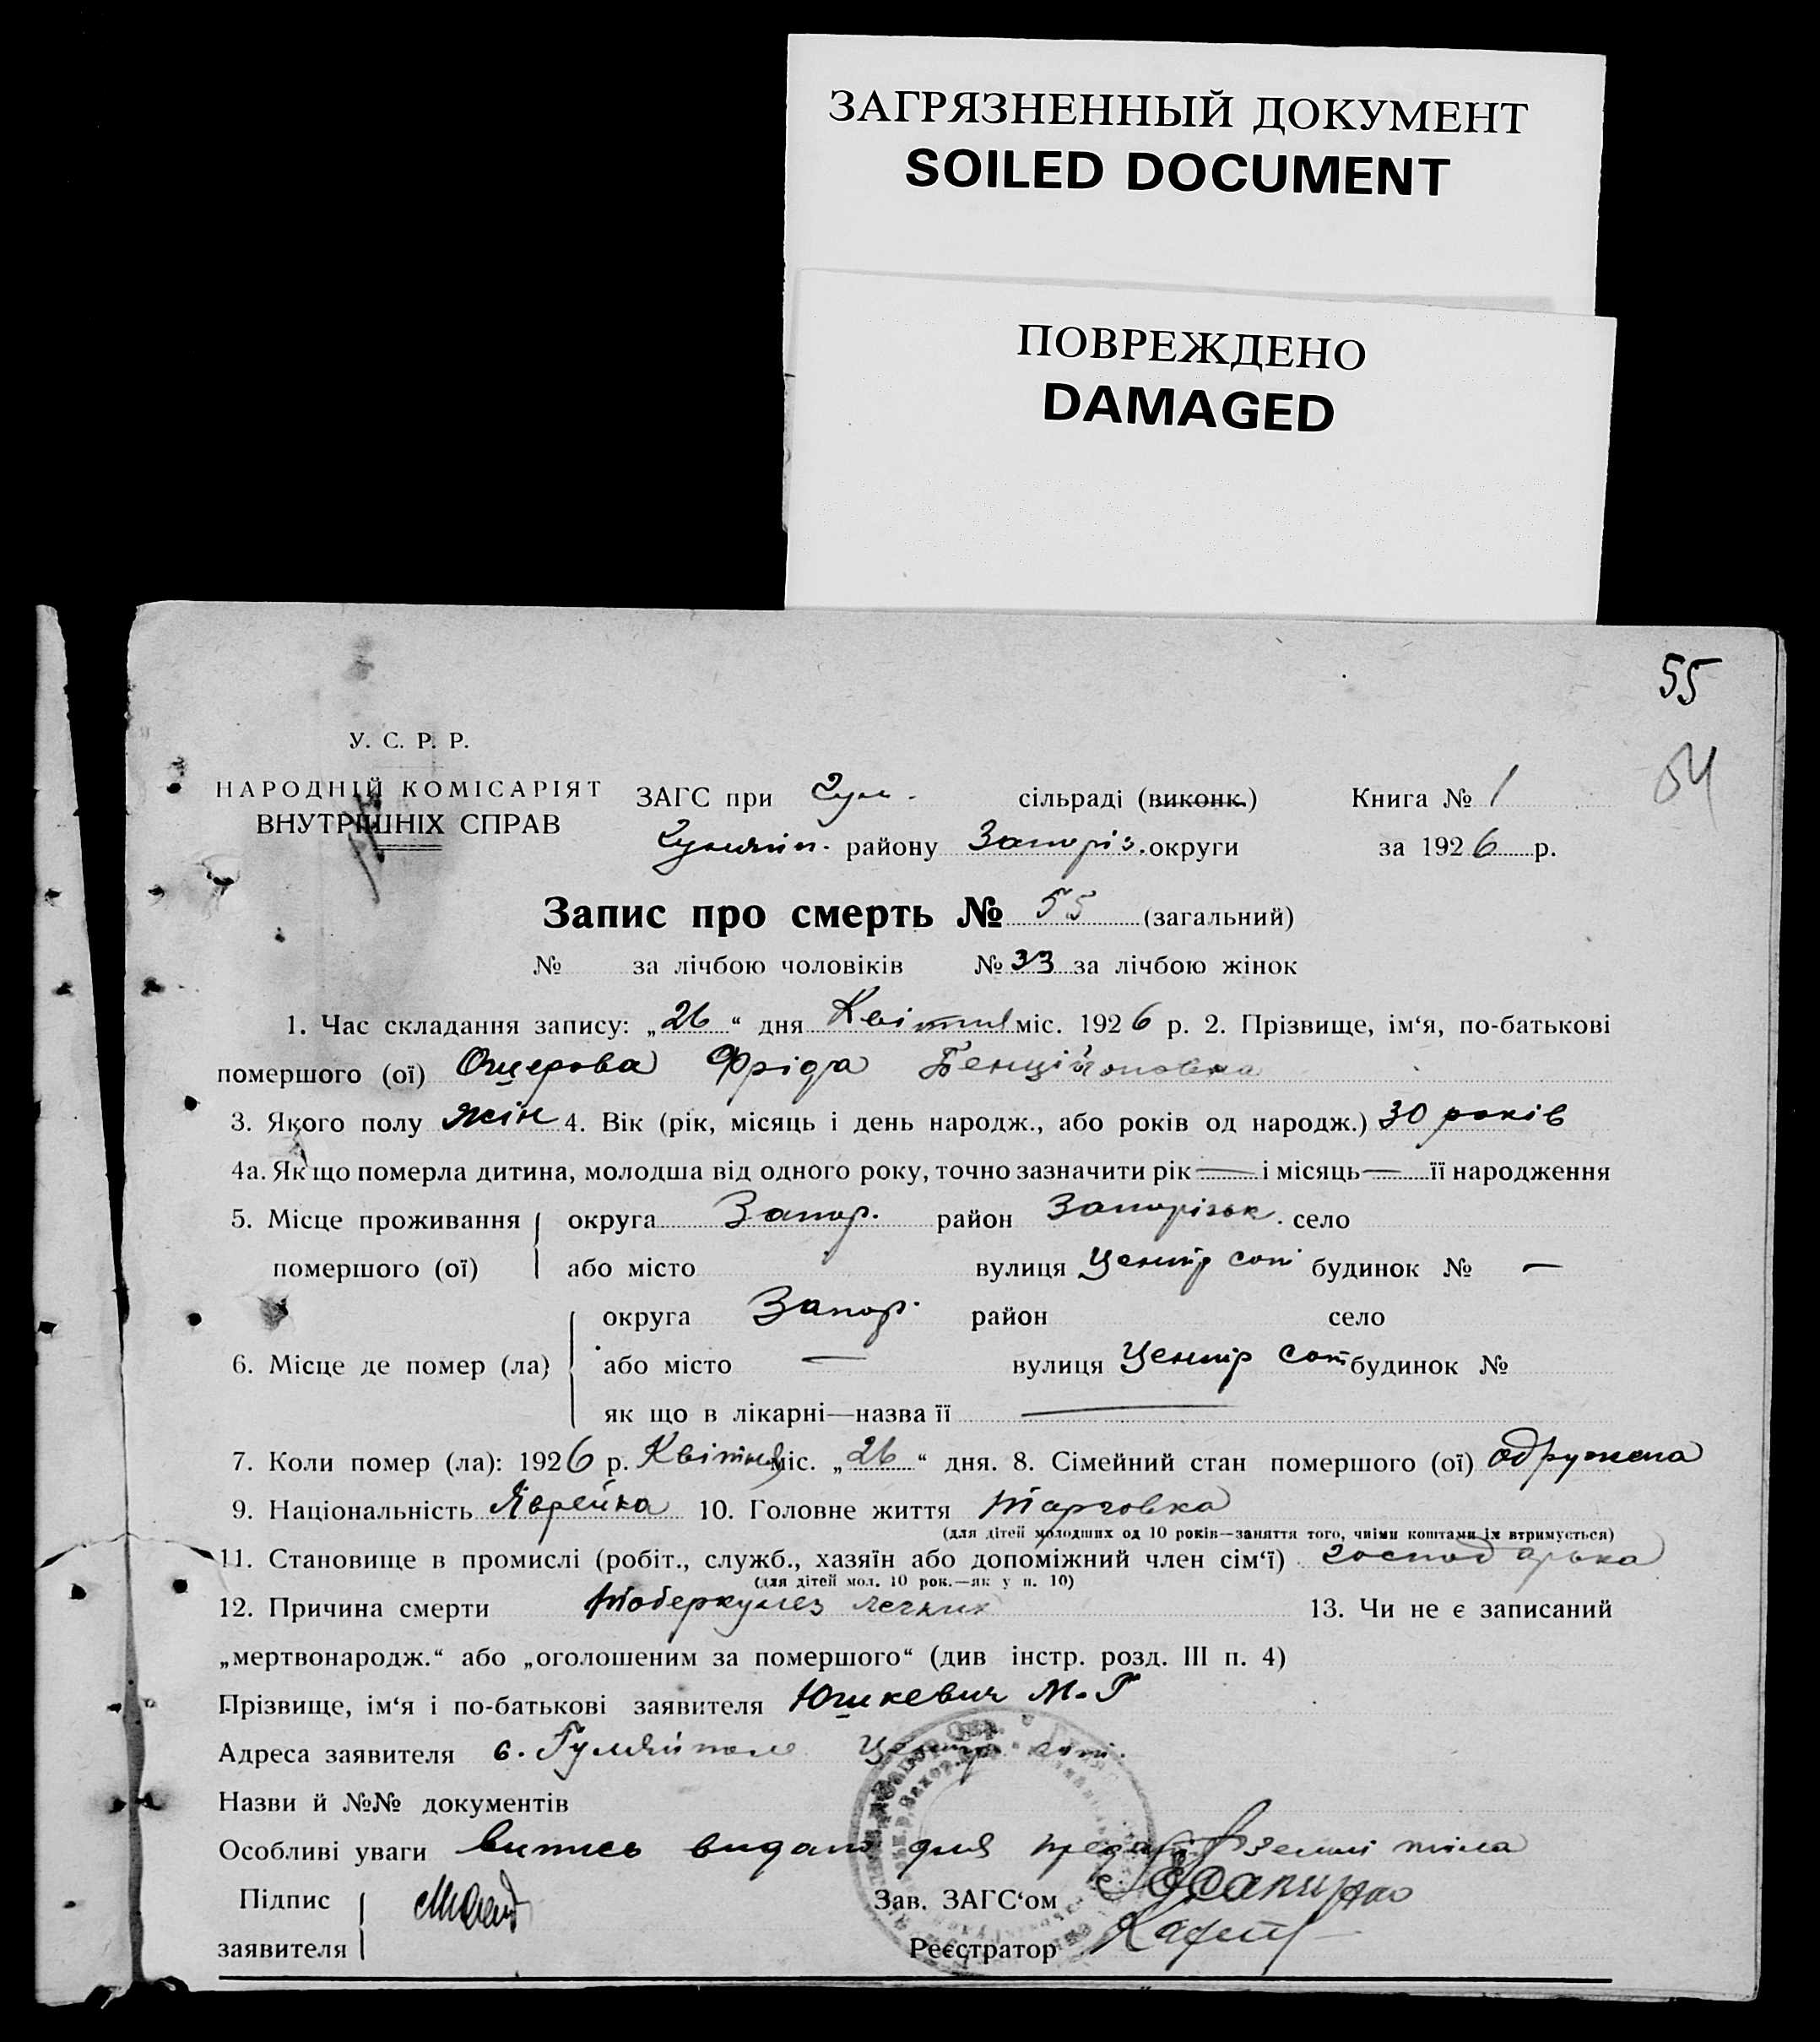 ЗАГРЯЗНЕННЫЙ ДОКУМЕНТ
SOILED DOCUMENT
ПОВРЕЖДЕНО
DAMAGED
55
54
У. С. Р. Р.
НАРОДНІЙ КОМІСАРІЯТ
ВНУТРІШНІХ СПРАВ
ЗАГС при Гул. сільраді (виконк.) Книга № 1
Гуляйп. району Запоріз. округи за 1926 р.
Запис про смерть № 55 (загальний)
№ за лічбою чоловіків № 33 за лічбою жінок
1. Час складання запису: „26“ дня Квітня міс. 1926 р. 2. Прізвище, ім‘я, по-батькові
помершого (ої) Ошерова Фріда Бенційоновна
3. Якого полу жін 4. Вік (рік, місяць і день народж., або років од народж.) 30 років
4а. Як що померла дитина, молодша від одного року, точно зазначити рік — і місяць — її народження
5. Місце проживання округа Запор. район Запорізьк. село
помершого (ої) або місто вулиця Центр сот будинок № —
округа Запор. район село
6. Місце де помер (ла) або місто — вулиця Центр сот будинок №
як що в лікарні—назва її —
7. Коли помер (ла): 1926 р. Квітня міс. „26“ дня. 8. Сімейний стан помершого (ої) одружена
9. Національність Яврейка 10. Головне життя торговка
(для дітей молодших од 10 років—заняття того, чиїми коштами їх втримується)
11. Становище в промислі (робіт., служб., хазяїн або допоміжний член сім‘ї) господарька
(для дітей мол. 10 рок.—як у п. 10)
12. Причина смерти тоберкулез легких 13. Чи не є записаний
„мертвонародж.“ або „оголошеним за помершого“ (див інстр. розд. III п. 4)
Прізвище, ім‘я і по-батькові заявителя Юшкевич М. Г
Адреса заявителя с. Гуляйполе Центр. сот.
Назви й №№ документів
Особливі уваги Випись видано для тіла
Підпис Зав. ЗАГС‘ом
заявителя Реєстратор